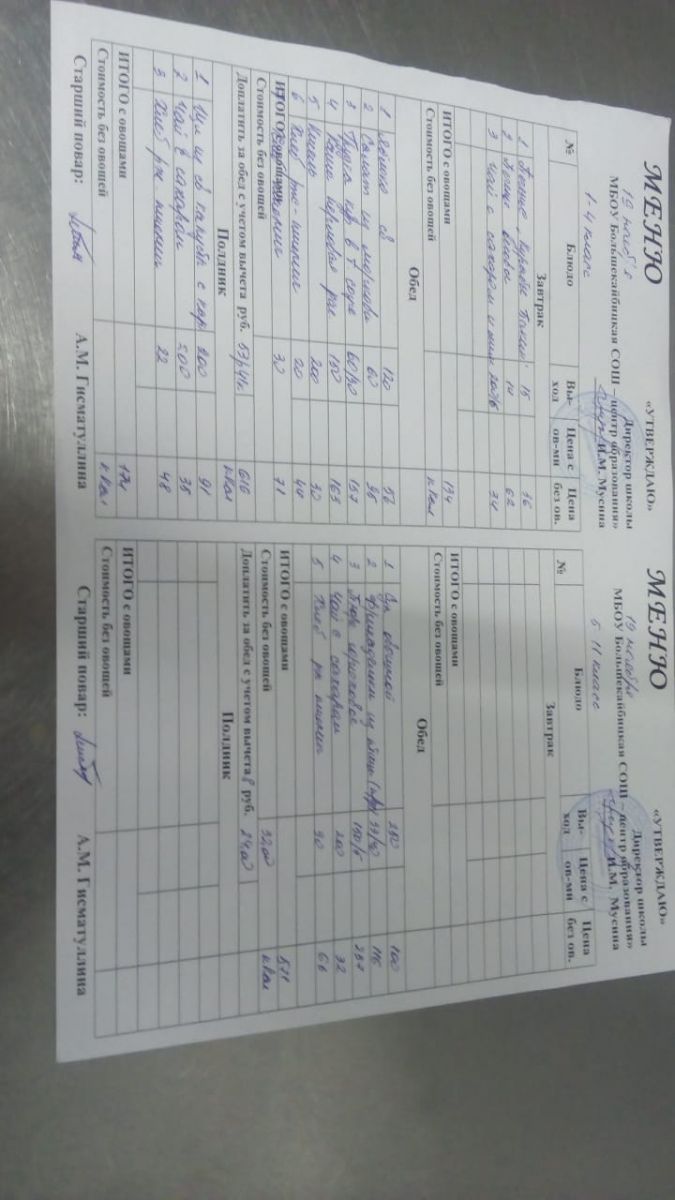 МЕНЮ
«УТВЕРЖДАЮ»
Директор школы
19 ноября
МБОУ Большекайбицкая СОШ – центр образования»
И.М. Мусина
1-4 класс
№ Блюдо Вы-ход Цена с ов-ми Цена без ов.
Завтрак
1 15 36
2 14 62
3 Чай с сахаром 34
ИТОГО с овощами 134
Стоимость без овощей ккал
Обед
1 Яблоко св 120 56
2 Салат из моркови 60 95
3 в соусе 60/30 137
4 Каша перловая 150 163
5 200 30
6 Хлеб рж-пшенич 20 44
ИТОГО с овощами 30 71
Стоимость без овощей
Доплатить за обед с учетом вычета руб. 53р41к 616 ккал
Полдник
1 Щи из св капусты с кар 200 91
2 Чай с сахаром 200 35
3 Хлеб рж пшенич 22 48
ИТОГО с овощами 174
Стоимость без овощей ккал
Старший повар: А.М. Гисматуллина
МЕНЮ
«УТВЕРЖДАЮ»
Директор школы
19 ноября
МБОУ Большекайбицкая СОШ – центр образования»
И.М. Мусина
5 11 класс
№ Блюдо Вы-ход Цена с ов-ми Цена без ов.
Завтрак
ИТОГО с овощами
Стоимость без овощей
Обед
1 Суп овощной 250 100
2 Фрикадельки из птицы 116
3 гречковое 150/5 257
4 Чай с сахаром 200 32
5 Хлеб рж пшенич 30 66
ИТОГО с овощами 571
Стоимость без овощей 32,00 ккал
Доплатить за обед с учетом вычета 8 руб. 24,00
Полдник
ИТОГО с овощами
Стоимость без овощей
Старший повар: А.М. Гисматуллина